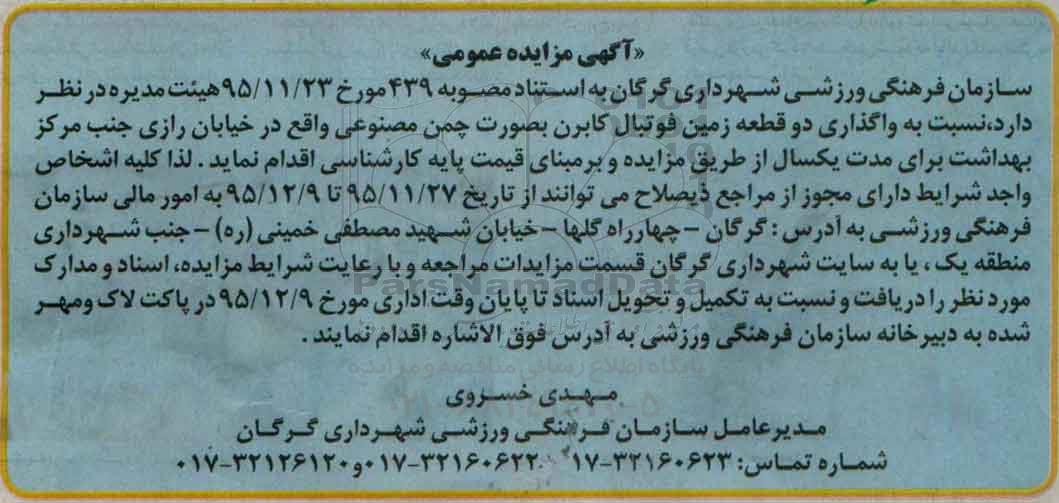 «آگهی مزایده عمومی»
سازمان فرهنگی ورزشی شهرداری گرگان به استناد مصوبه ۴۳۹ مورخ ۹۵/۱۱/۲۳ هیئت مدیره در نظر
دارد،نسبت به واگذاری دو قطعه زمین فوتبال کابرن بصورت چمن مصنوعی واقع در خیابان رازی جنب مرکز
بهداشت برای مدت یکسال از طریق مزایده و برمبنای قیمت پایه کارشناسی اقدام نماید . لذا کلیه اشخاص
واجد شرایط دارای مجوز از مراجع ذیصلاح می توانند از تاریخ ۹۵/۱۱/۲۷ تا ۹۵/۱۲/۹ به امور مالی سازمان
فرهنگی ورزشی به آدرس : گرگان - چهارراه گلها - خیابان شهید مصطفی خمینی (ره) - جنب شهرداری
منطقه یک ، یا به سایت شهرداری گرگان قسمت مزایدات مراجعه و با رعایت شرایط مزایده، اسناد و مدارک
ParsNamadData
مورد نظر را دریافت و نسبت به تکمیل و تحویل اسناد تا پایان وقت اداری مورخ ۹۵/۱۲/۹ در پاکت لاک ومهر
شده به دبیرخانه سازمان فرهنگی ورزشی به آدرس فوق الاشاره اقدام نمایند .
پایگاه اطلاع رسانی مناقصه و مزایده
مهدی خسروی
مدیرعامل سازمان فرهنگی ورزشی شهرداری گرگان
شماره تماس: ۳۲۱۶۰۶۲۳-۰۱۷ ۳۲۱۶۰۶۲۲-۰۱۷ و ۳۲۱۲۶۱۲۰-۰۱۷